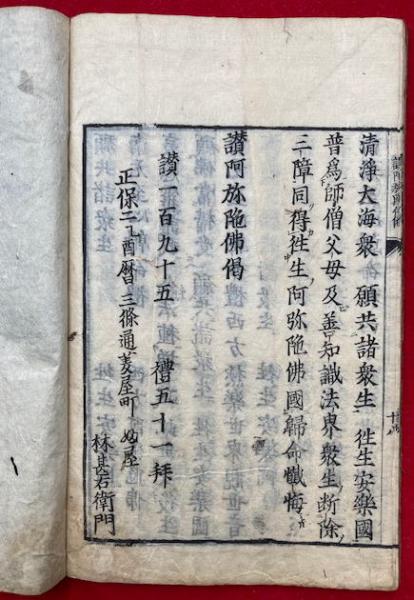 清淨大海衆 願共諸衆生 徃生安樂國
普爲師僧父母及善知識法界衆生断除
三障同得徃生阿弥陁佛國歸命懺悔
讃阿弥陁佛偈
讃一百九十五 禮五十一拜
正保二乙酉曆三條通菱屋町 婦屋
林甚右衛門